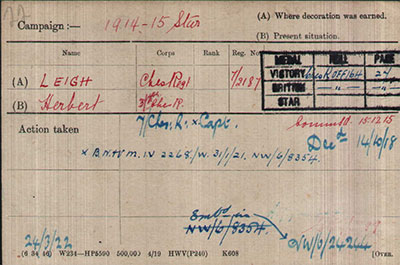 Campaign :— 1914-15 Star
(A) Where decoration was earned.
(B) Present situation.
Name Corps Rank Reg. No.
MEDAL ROLL PAGE
VICTORY OFF/164 24
BRITISH — " — — " —
STAR
(A) LEIGH Ches. Regt
(B) Herbert Ches. R.
Action taken 7/Ches. R. x Capt.
15.12.15
Decd 14/10/18
x B.W.&V.M. IV 2268./W. 31/1/21. NW/6/8354.
Embd in
NW/6/8354.
NW/6/24244
24/3/22
(6 34 46) W234—HP5590 500,000 4/19 HWV(P240) K608 [OVER.